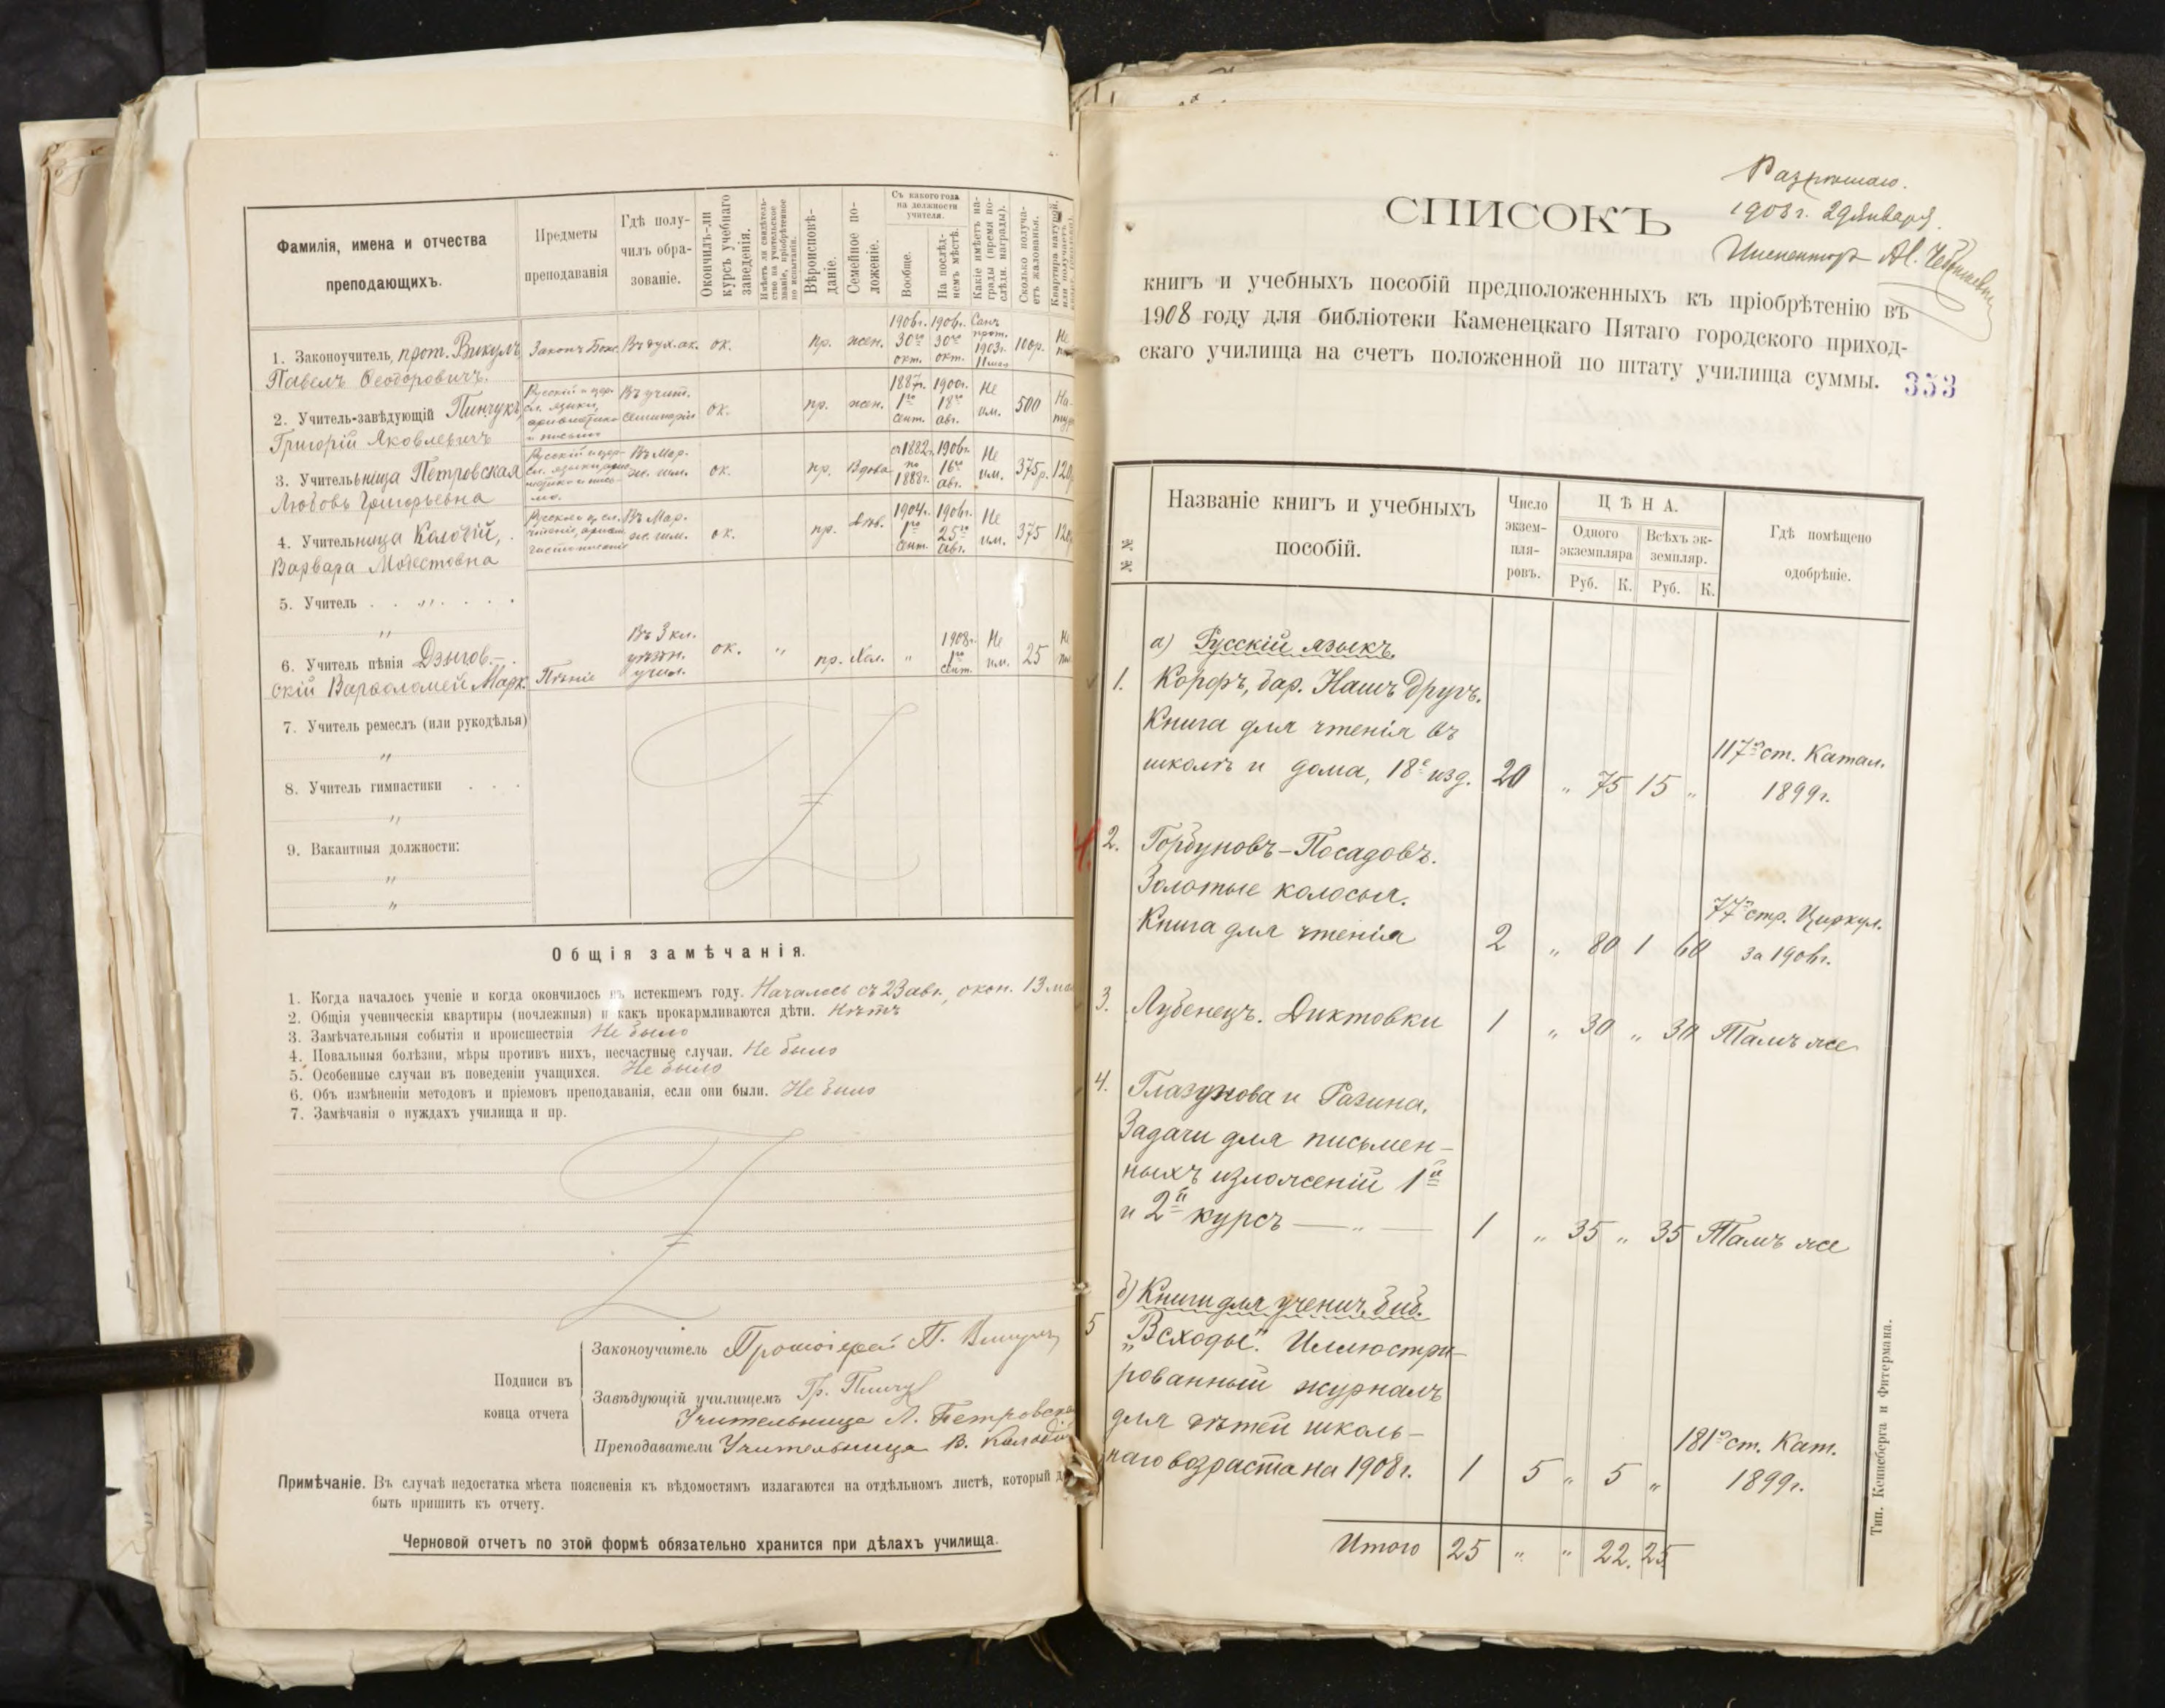 Фамилія, имена и отчества
преподающихъ.
Предметы
преподаванія
Гдѣ полу-
чилъ обра-
зованіе.
Окончилъ-ли
курсъ учебнаго
заведенія.
Имѣетъ ли свидѣтель-
ство на учительское
званіе, пріобрѣтенное
по испытанію.
Вѣроисповѣ-
даніе.
Семейное по-
ложеніе.
Съ какого года
на должности
учителя.
Вообще.
На послѣд-
немъ мѣстѣ.
Какіе имѣетъ на-
грады (время по-
слѣдн. награды).
Сколько получа-
етъ жалованья.
Квартира натурой,
1. Законоучитель, прот. Викулъ Законъ Бож. Въ дух. ак. ок. пр. жен. 1906г. 30го окт. 1906г. 30го окт. Санъ прот. 1903г. 100р. Не
Павелъ Ѳеодоровичъ.
2. Учитель-завѣдующій Пинчукъ, Русскій и цер. сл. языки, ариѳметика и письмо Въ учит. семинаріи ок. пр. жен. 1887г. 1го сент. 1900г. 18го авг. Не им. 500 На-
Григорій Яковлевичъ
3. Учительница Петровская Русскій и цер. сл. языки Въ Мар. ж. гим. ок. пр. Вдова съ 1882г. по 1888г. 1906г. 16го авг. Не им. 375р. 120
Любовь Григорьевна
4. Учительница Калодій, Въ Мар. ж. гим. ок. пр. дѣв. 1904г. 1го сент. 1906г. 25го авг. Не им. 375 120
Варвара Модестовна
5. Учитель . . „ . . . .
„
6. Учитель пѣнія Дзыгов- Пѣніе Въ 3 кл. уѣздн. учил. ок. „ пр. Хол. „ 1908г. 1го сент. Не им. 25 Не
скій Варѳоломей Марк.
7. Учитель ремеслъ (или рукодѣлья)
„
8. Учитель гимнастики . . .
„
9. Вакантныя должности:
„
„
Общія замѣчанія.
1. Когда началось ученіе и когда окончилось въ истекшемъ году. Началось съ 23 авг., окон. 13
2. Общія ученическія квартиры (ночлежныя) и какъ прокармливаются дѣти. Нѣтъ
3. Замѣчательныя событія и происшествія Не было
4. Повальныя болѣзни, мѣры противъ нихъ, несчастные случаи. Не было
5. Особенные случаи въ поведеніи учащихся. Не было
6. Объ измѣненіи методовъ и пріемовъ преподаванія, если они были. Не было
7. Замѣчанія о нуждахъ училища и пр.
Подписи въ
конца отчета
Законоучитель Протоіерей П. Викулъ
Завѣдующій училищемъ Гр. Пинчук
Учительница Л. Петровская
Преподаватели Учительница В. Калодій
Примѣчаніе. Въ случаѣ недостатка мѣста поясненія къ вѣдомостямъ излагаются на отдѣльномъ листѣ, который
быть пришитъ къ отчету.
Черновой отчетъ по этой формѣ обязательно хранится при дѣлахъ училища.
Разрѣшаю.
1908г. 29 Января.
Инспекторъ
СПИСОКЪ
книгъ и учебныхъ пособій предположенныхъ къ пріобрѣтенію въ
1908 году для библіотеки Каменецкаго Пятаго городского приход-
скаго училища на счетъ положенной по штату училища суммы.
353
№ №
Названіе книгъ и учебныхъ
пособій.
Число
экзем-
пля-
ровъ.
ЦѢНА.
Одного
экземпляра
Всѣхъ эк-
земпляр.
Руб. К. Руб. К.
Гдѣ помѣщено
одобреніе.
а) Русскій языкъ.
1. Корфъ, бар. Нашъ другъ.
Книга для чтенія въ
школѣ и дома, 18е изд. 20 „ 75 15 „ 117я ст. Катал.
1899г.
2. Горбуновъ-Посадовъ.
Золотые колосья.
Книга для чтенія 2 „ 80 1 60 77я стр. Циркул.
за 1906г.
3. Лубенецъ. Диктовки 1 „ 30 „ 30 Тамъ же
4. Глазунова и Разина.
Задачи для письмен-
ныхъ изложеній 1й
и 2й курсъ — „ — 1 „ 35 „ 35 Тамъ же
б) Книги для ученич. биб.
5 „Всходы". Иллюстри-
рованный журналъ
для дѣтей школь-
наго возраста на 1908г. 1 5 „ 5 „ 181я ст. Кат.
1899г.
Итого 25 „ „ 22. 25
Тип. Кеннсберга и Фитермана.